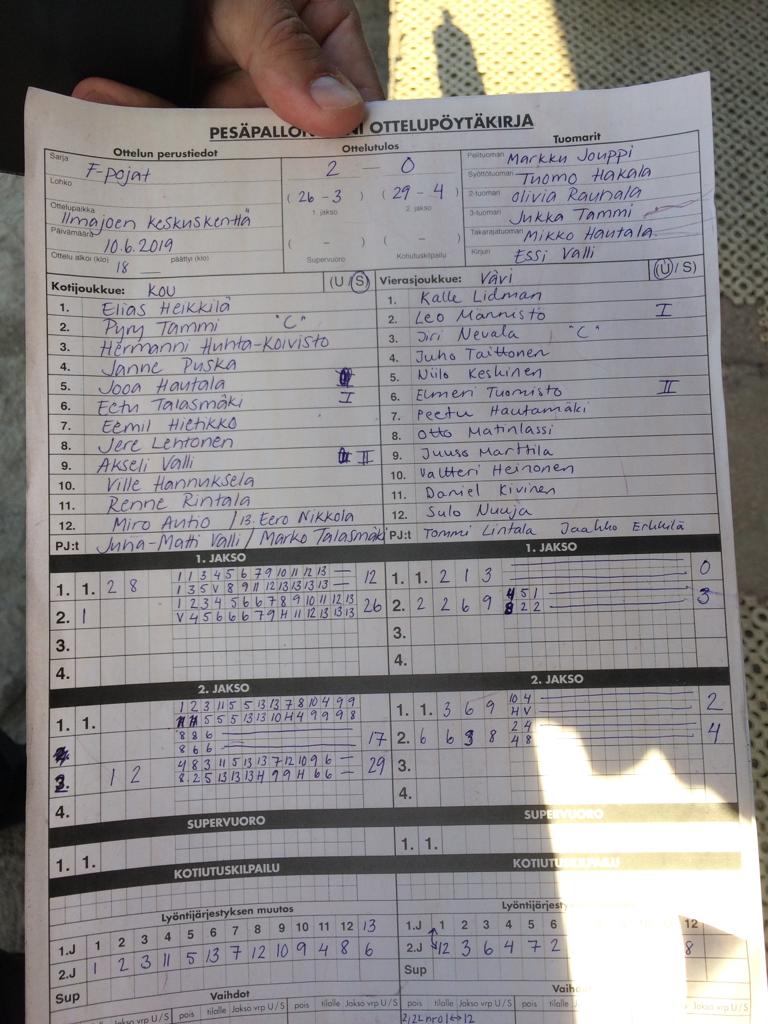 PESÄPALLON OTTELUPÖYTÄKIRJA
Ottelun perustiedot
Sarja F-pojat
Lohko
Ottelupaikka Ilmajoen keskuskenttä
Päivämäärä 10.6.2019
Ottelu alkoi (klo) 18 päättyi (klo)
Ottelutulos
2 — 0
(26 - 3) (29 - 4)
1. jakso 2. jakso
( - ) ( - )
Supervuoro Kotiutuskilpailu
Tuomarit
Pelituomari Markku Jouppi
Syöttötuomari Tuomo Hakala
2-tuomari Olivia Rauhala
3-tuomari Jukka Tammi
Takarajatuomari Mikko Hautala
Kirjuri Essi Valli
Kotijoukkue: Kou (U / S)
1. Elias Heikkilä
2. Pyry Tammi "C"
3. Hermanni Huhta-Koivisto
4. Janne Puska
5. Jooa Hautala
6. Eetu Talasmäki I
7. Eemil Hietikko
8. Jere Lehtonen
9. Akseli Valli II
10. Ville Hannuksela
11. Renne Rintala
12. Miro Autio / 13. Eero Nikkola
PJ:t Juha-Matti Valli / Marko Talasmäki
Vierasjoukkue: Vävi (U / S)
1. Kalle Lidman
2. Leo Männistö I
3. Jiri Nevala "C"
4. Juho Taittonen
5. Niilo Keskinen
6. Elmeri Tuomisto II
7. Peetu Hautamäki
8. Otto Matinlassi
9. Juuso Marttila
10. Valtteri Heinonen
11. Daniel Kivinen
12. Sulo Nuuja
PJ:t Tommi Lintala Jaakko Erkkilä
1. JAKSO
1. 1. 2 8
1 1 3 4 5 6 7 9 10 11 12 13 — 12
1 3 5 V 8 9 11 12 13 13 13 13 —
2. 1
1 2 3 4 5 6 6 7 8 9 10 11 12 13 26
V 4 5 6 6 6 7 9 H 11 12 13 13 13
3.
4.
1. JAKSO
1. 1. 2 1 3 0
2. 2 2 6 9
4 5 1 3
8 2 2
3.
4.
2. JAKSO
1. 1.
1 2 3 11 5 5 13 13 7 8 10 4 9 9
11 11 5 5 5 13 13 10 H 4 9 9 9 8
8 8 6 17
8 6 6
3. 1 2
4 8 3 11 5 13 13 7 12 10 9 6 — 29
8 2 5 13 13 13 H 9 9 H 6 6 —
4.
2. JAKSO
1. 1. 3 6 9
10 4 2
H V
2. 6 6 3 8
2 4 4
4 8
3.
4.
SUPERVUORO
1. 1.
SUPERVUORO
1. 1.
KOTIUTUSKILPAILU
KOTIUTUSKILPAILU
Lyöntijärjestyksen muutos
1.J 1 2 3 4 5 6 7 8 9 10 11 12 13
2.J 1 2 3 11 5 13 7 12 10 9 4 8 6
Sup
1.J 1 2 3 4 5 6 12
2.J 12 3 6 4 7 2 8
Sup
Vaihdot
pois tilalle Jakso vrp U / S pois tilalle Jakso vrp U / S